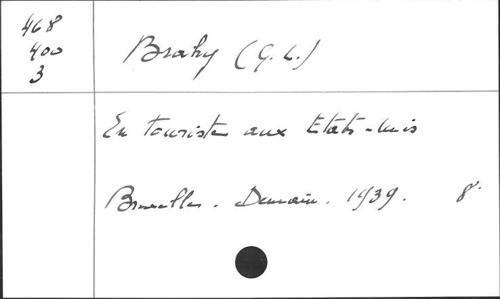 468
400
3
Brahy (G. L.)
En touriste aux Etats-Unis
Bruxelles. Demain. 1939. 8°